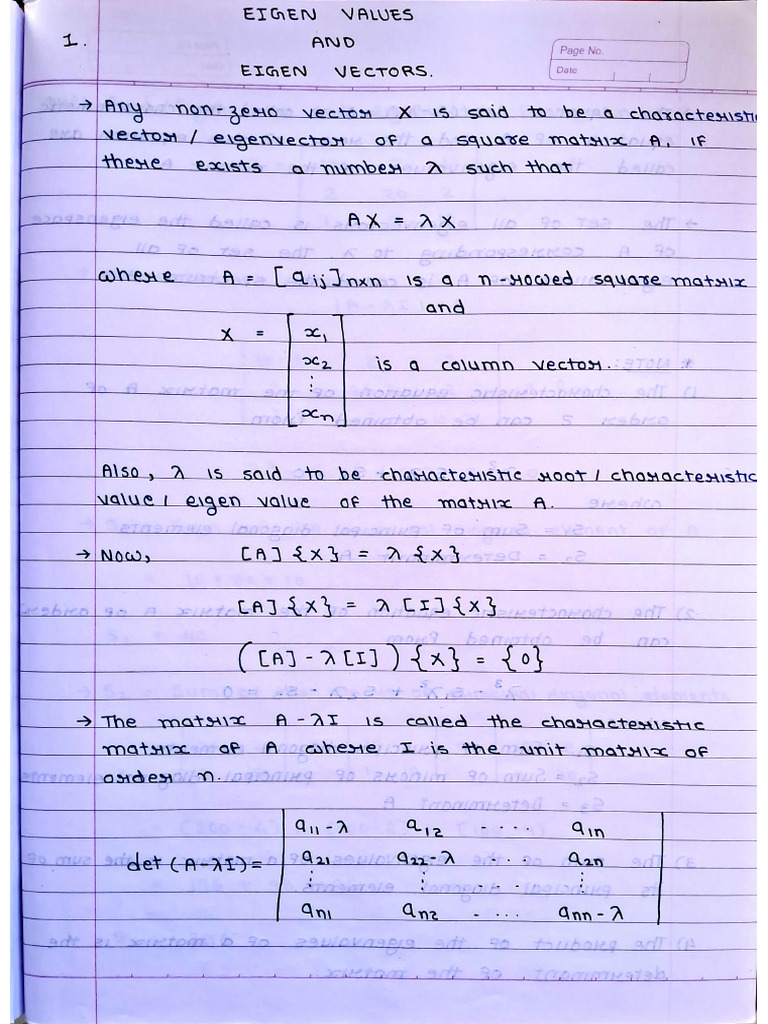 EIGEN VALUES
1. AND
EIGEN VECTORS.
Page No.
Date
→ Any non-zero vector X is said to be a characteristic
vector / eigenvector of a square matrix A, if
there exists a number λ such that
AX = λX
where A = [aij]n×n is a n-rowed square matrix
and
X = [x₁
x₂
⋮
xn] is a column vector.
Also, λ is said to be characteristic root / characteristic
value / eigen value of the matrix A.
→ Now, [A] {X} = λ {X}
[A] {X} = λ [I] {X}
([A] - λ [I]) {X} = {0}
→ The matrix A - λI is called the characteristic
matrix of A where I is the unit matrix of
order n.
det (A - λI) = | a₁₁-λ a₁₂ - ... a₁n
a₂₁ a₂₂-λ ... a₂n
⋮ ⋮ ... ⋮
an₁ an₂ - ... ann-λ |